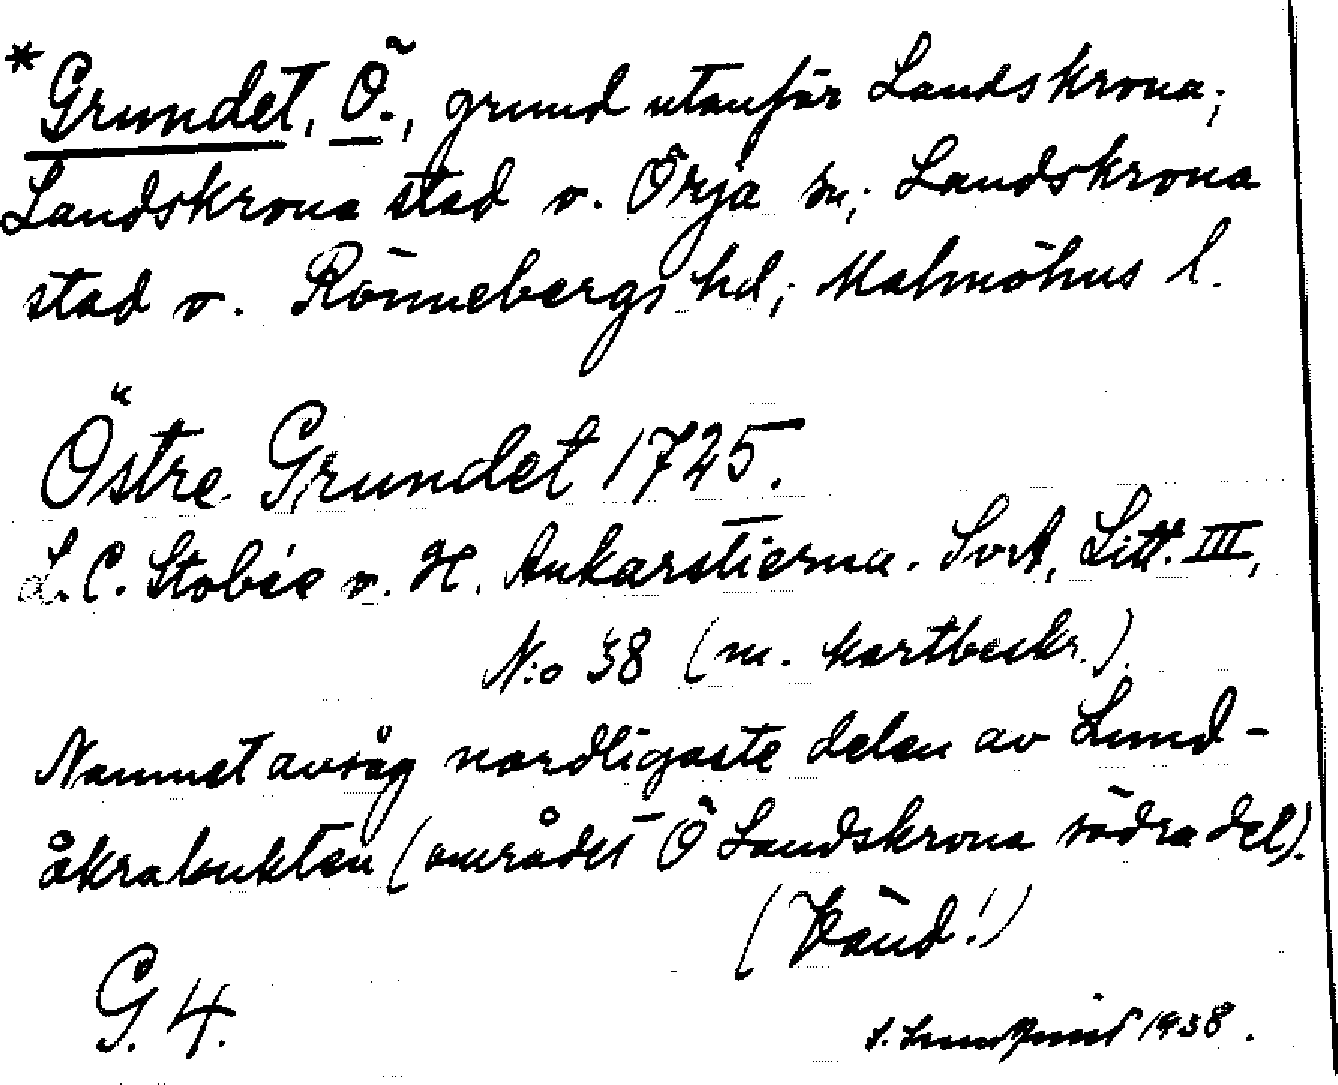 *Grundet, Ö., grund utanför Landskrona;
Landskrona stad o. Örja sn; Landskrona
stad o. Rönnebergs hd; Malmöhus l.
Östre Grundet 1725.
L. C. Stobée o. H. Ankarstierna. SvA, Litt. III,
N:o 38 (m. kartbeskr.).
Namnet avsåg nordligaste delen av Lund-
åkrabukten (området Ö Landskrona södra del).
(Vänd!)
G. 4.
1938.